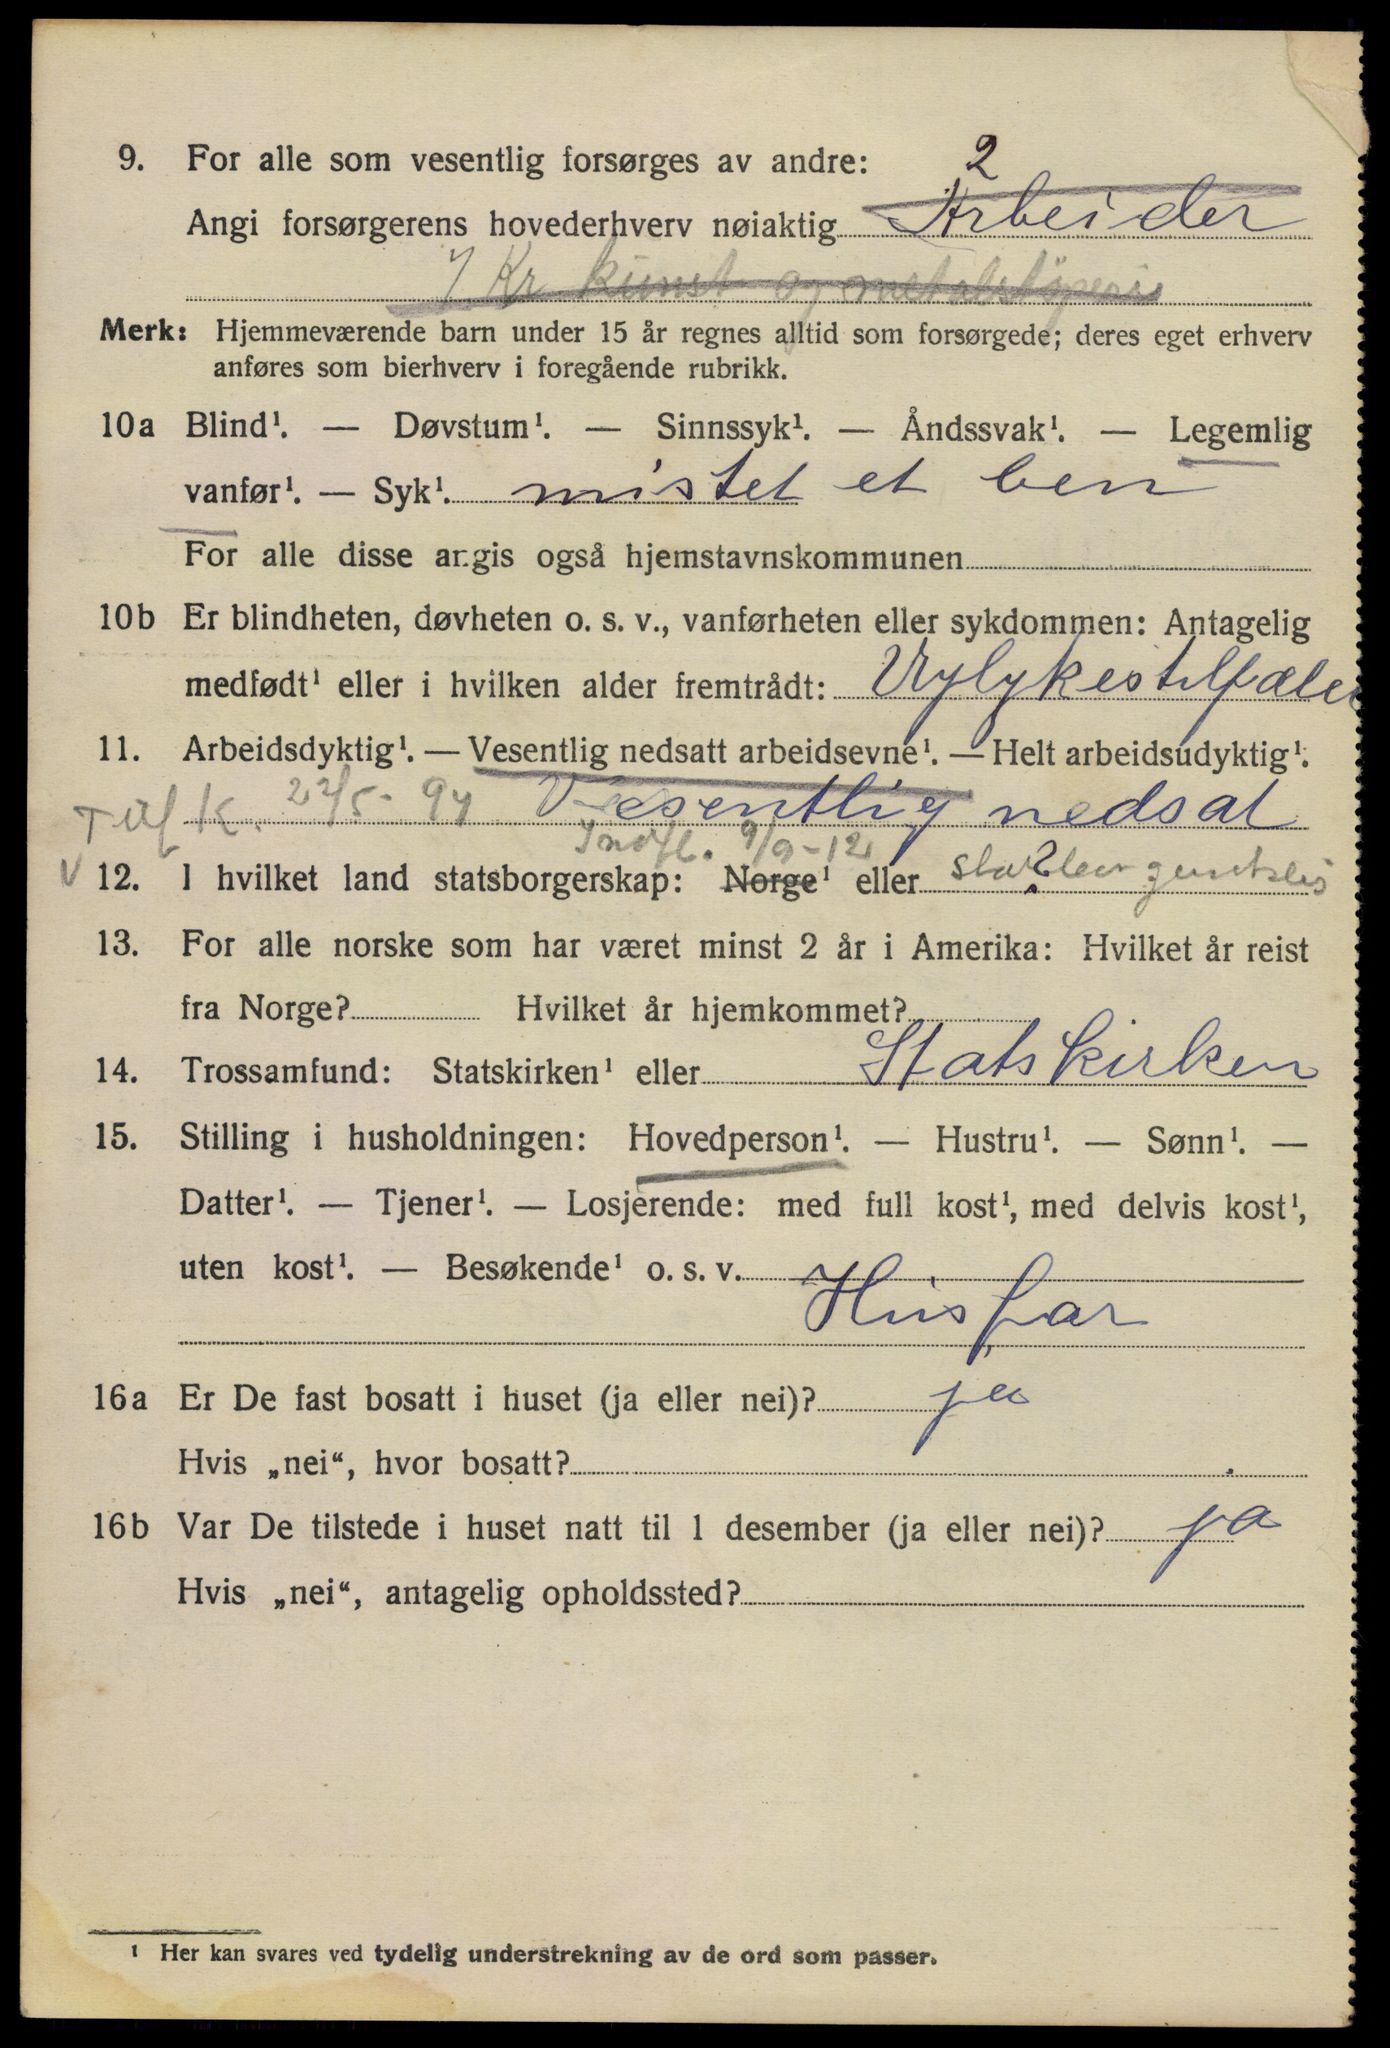 2
9. For alle som vesentlig forsørges av andre:
Angi forsørgerens hovederhverv nøiaktig Arbeider
Kr kunst og metalstøperi
Merk: Hjemmeværende barn under 15 år regnes alltid som forsørgede; deres eget erhverv
anføres som bierhverv i foregående rubrikk.
10a Blind¹. — Døvstum¹. — Sinnssyk¹. — Åndssvak¹. — Legemlig
vanfør¹. — Syk¹. mistet et ben
For alle disse angis også hjemstavnskommunen
10b Er blindheten, døvheten o. s. v., vanførheten eller sykdommen: Antagelig
medfødt¹ eller i hvilken alder fremtrådt:
11. Arbeidsdyktig¹. — Vesentlig nedsatt arbeidsevne¹. — Helt arbeidsudyktig¹.
22/5- Vesentlig nedsat
9/9-12
12. I hvilket land statsborgerskap: Norge¹ eller ?
13. For alle norske som har været minst 2 år i Amerika: Hvilket år reist
fra Norge? Hvilket år hjemkommet?
14. Trossamfund: Statskirken¹ eller Statskirken
15. Stilling i husholdningen: Hovedperson¹. — Hustru¹. — Sønn¹. —
Datter¹. — Tjener¹. — Losjerende: med full kost¹, med delvis kost¹,
uten kost¹. — Besøkende¹ o. s. v.
Husfar
16a Er De fast bosatt i huset (ja eller nei)? ja
Hvis „nei“, hvor bosatt?
16b Var De tilstede i huset natt til 1 desember (ja eller nei)? ja
Hvis „nei“, antagelig opholdssted?
¹ Her kan svares ved tydelig understrekning av de ord som passer.